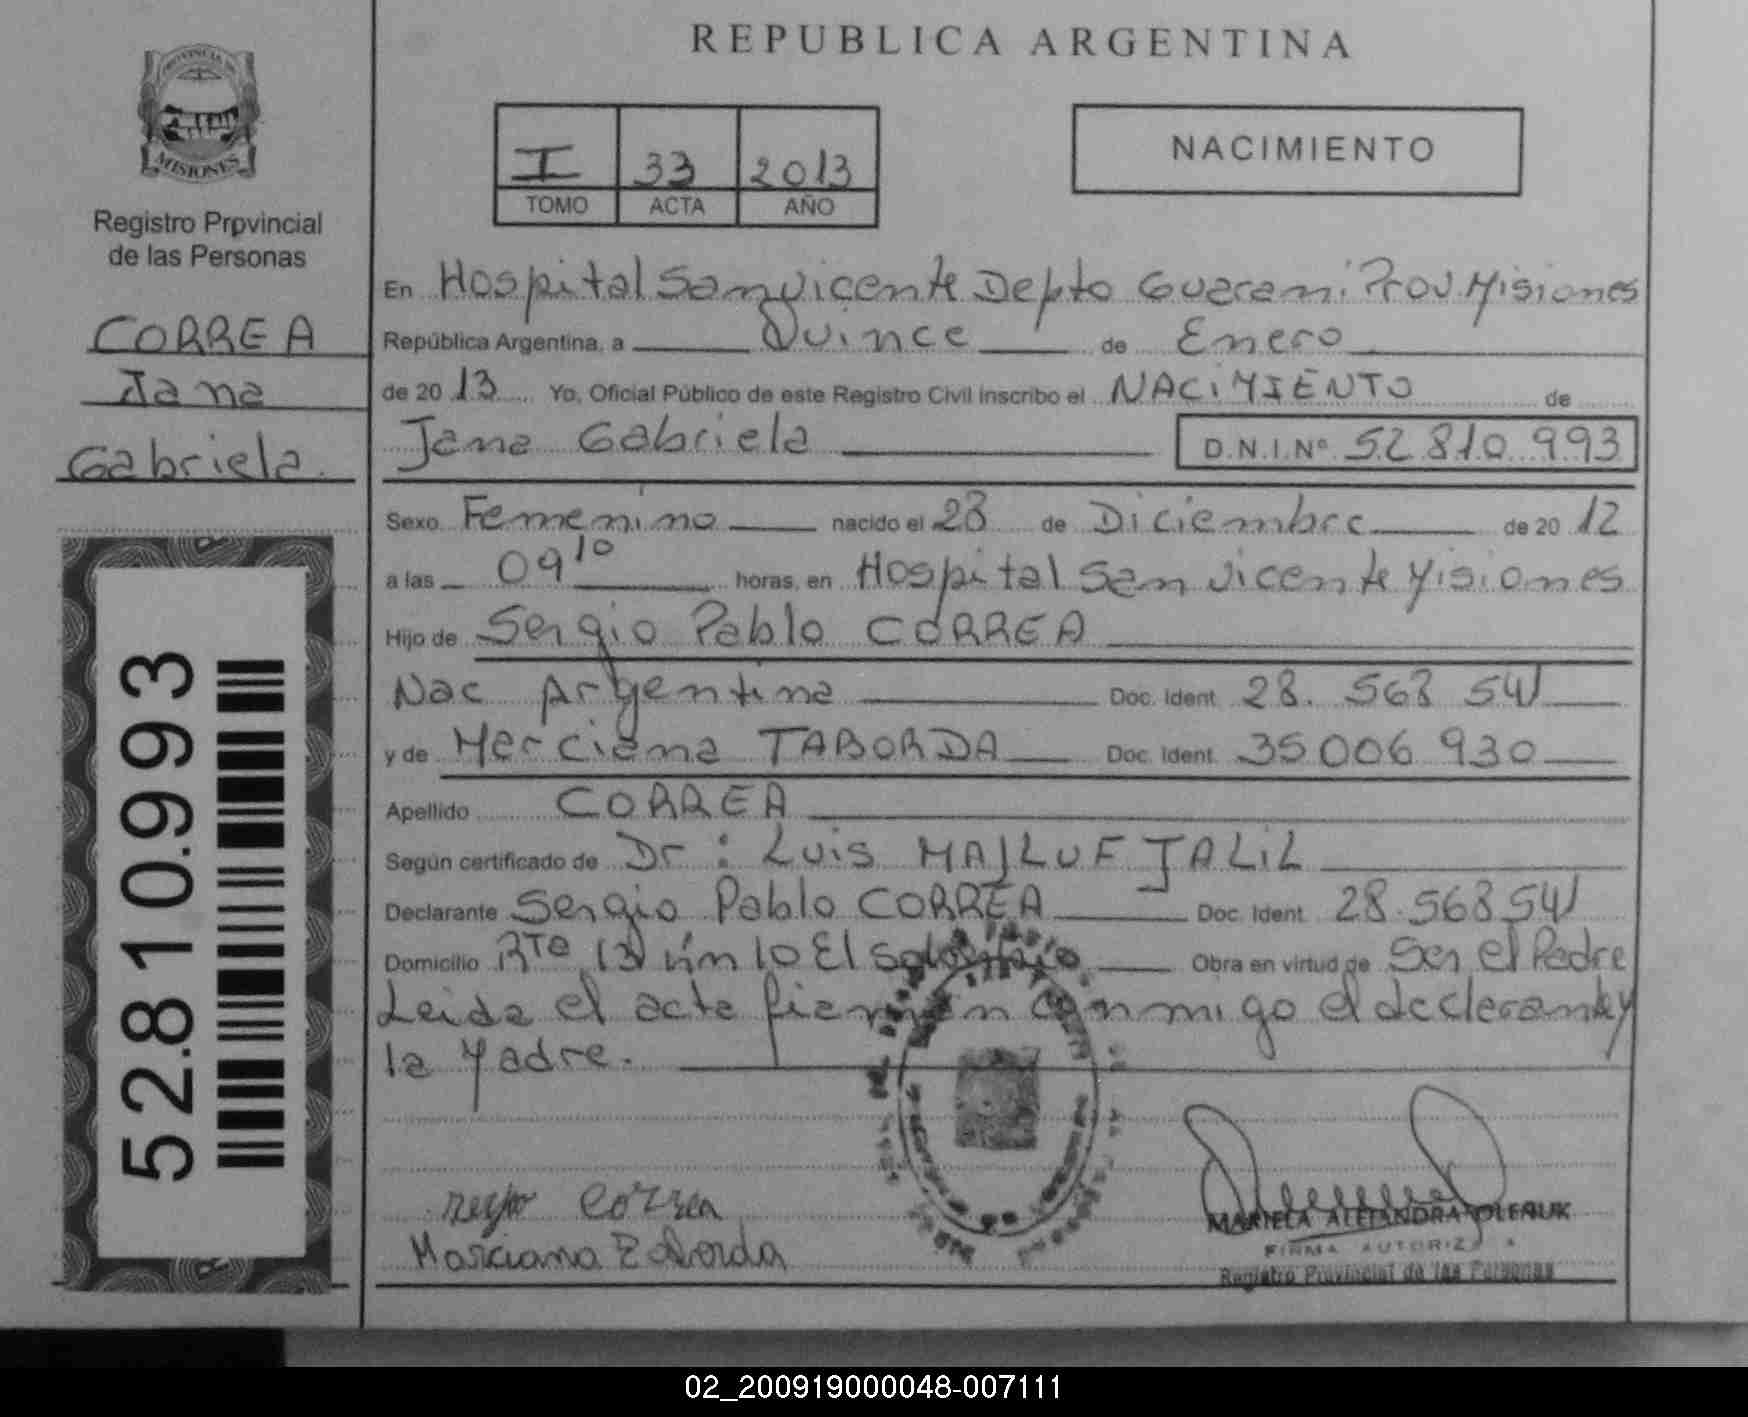 REPUBLICA ARGENTINA
PROVINCIA DE
MISIONES
Registro Provincial
de las Personas
CORREA
Jana
Gabriela.
52.810.993
I 33 2013
TOMO ACTA AÑO
NACIMIENTO
En Hospital San Vicente Depto Guarani Prov Misiones
República Argentina, a Quince de Enero
de 2013 Yo, Oficial Público de este Registro Civil inscribo el NACIMIENTO de
Jana Gabriela D.N.I.Nº 52 810 993
Sexo Femenino nacido el 28 de Diciembre de 2012
a las 09 10 horas, en Hospital San Vicente Misiones
Hijo de Sergio Pablo CORREA
Nac Argentina Doc. Ident. 28. 568 541
y de Marciana TABORDA Doc. Ident. 35 006 930
Apellido CORREA
Según certificado de Dr: Luis MAJLUF JALIL
Declarante Sergio Pablo CORREA Doc. Ident. 28.568 541
Domicilio Rta 13 km 10 El Soberbio Obra en virtud de Ser el Padre
Leida el acta firman conmigo el declarante y
la Madre.
Correa
Marciana Taborda
MARIELA ALEJANDRA OLEÑUK
FIRMA AUTORIZADA
Registro Provincial de las Personas
02_200919000048-007111